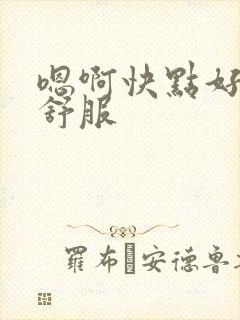 嗯啊快點好
舒服
羅布 安德魯